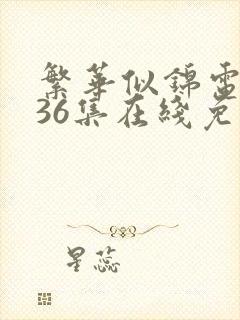 繁華似錦電
36集在綫免
星蕊